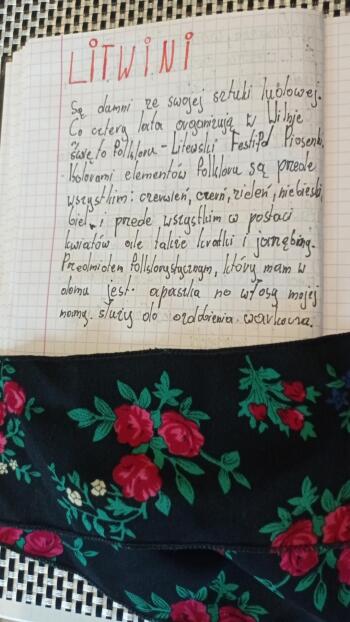 LITWINI
Są dumni ze swojej sztuki ludowej.
Co cztery lata organizują w Wilnie
Święto Folkloru - Litewski Festipd Piosenki.
Kolorami elementów folkloru są przede
wszystkim: czerwień, czerń, zieleń, niebieski,
biel, i przede wszystkim w postaci
kwiatów ale także kratki i jarzębiny.
Przedmiotem folklorystycznym, który mam w
domu jest apaszka na włosy mojej
mamy. służy do ozdobienia warkocza.